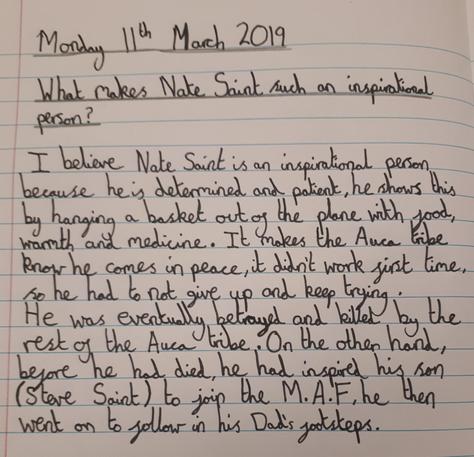 Monday 11th March 2019
What makes Nate Saint such an inspirational
person?
I believe Nate Saint is an inspirational person
because he is determined and patient, he shows this
by hanging a basket out of the plane with food,
warmth and medicine. It makes the Auca tribe
know he comes in peace, it didn't work first time,
so he had to not give up and keep trying.
He was eventually betrayed and killed by the
rest of the Auca tribe. On the other hand,
before he had died, he had inspired his son
(Steve Saint) to join the M.A.F, he then
went on to follow in his Dad's footsteps.